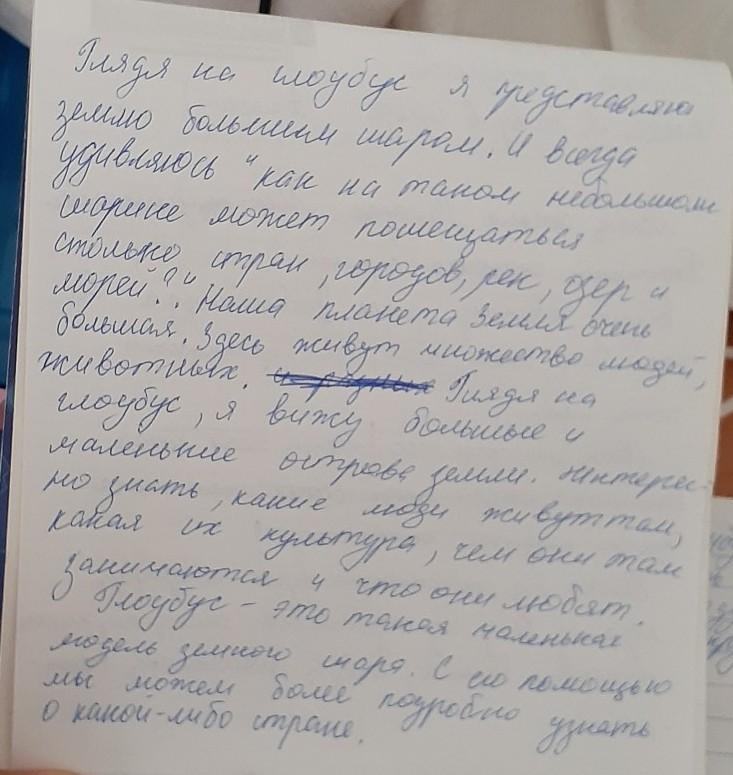 Глядя на глоубус я представляю
землю большим шаром. И всегда
удивляюсь "как на таком небольшом
шарике может помещаться
столько стран, городов, рек, озер и
морей?". Наша планета Земля очень
большая. Здесь живут множество людей,
животных. Глядя на
глоубус, я вижу большые и
маленькие острова земли. Интерес-
но знать, какие люди живут там,
какая их культура, чем они там
занимаются и что они любят.
Глоубус - это такая маленькая
модель земного шара. С его помощью
мы можем более подробно узнать
о какой-либо стране.